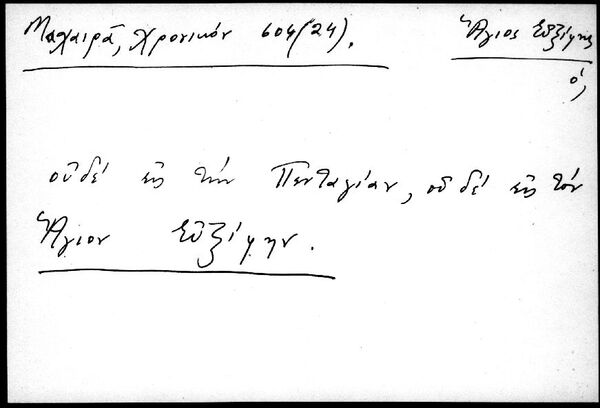 Μαχαιρᾶ, Χρονικόν 604(24).
Ἅγιος Εὐξίφης
ὁ,
οὐδέ εἰς τήν Πενταγίαν, οὐδέ εἰς τόν
Ἅγιον Εὐξίφην.